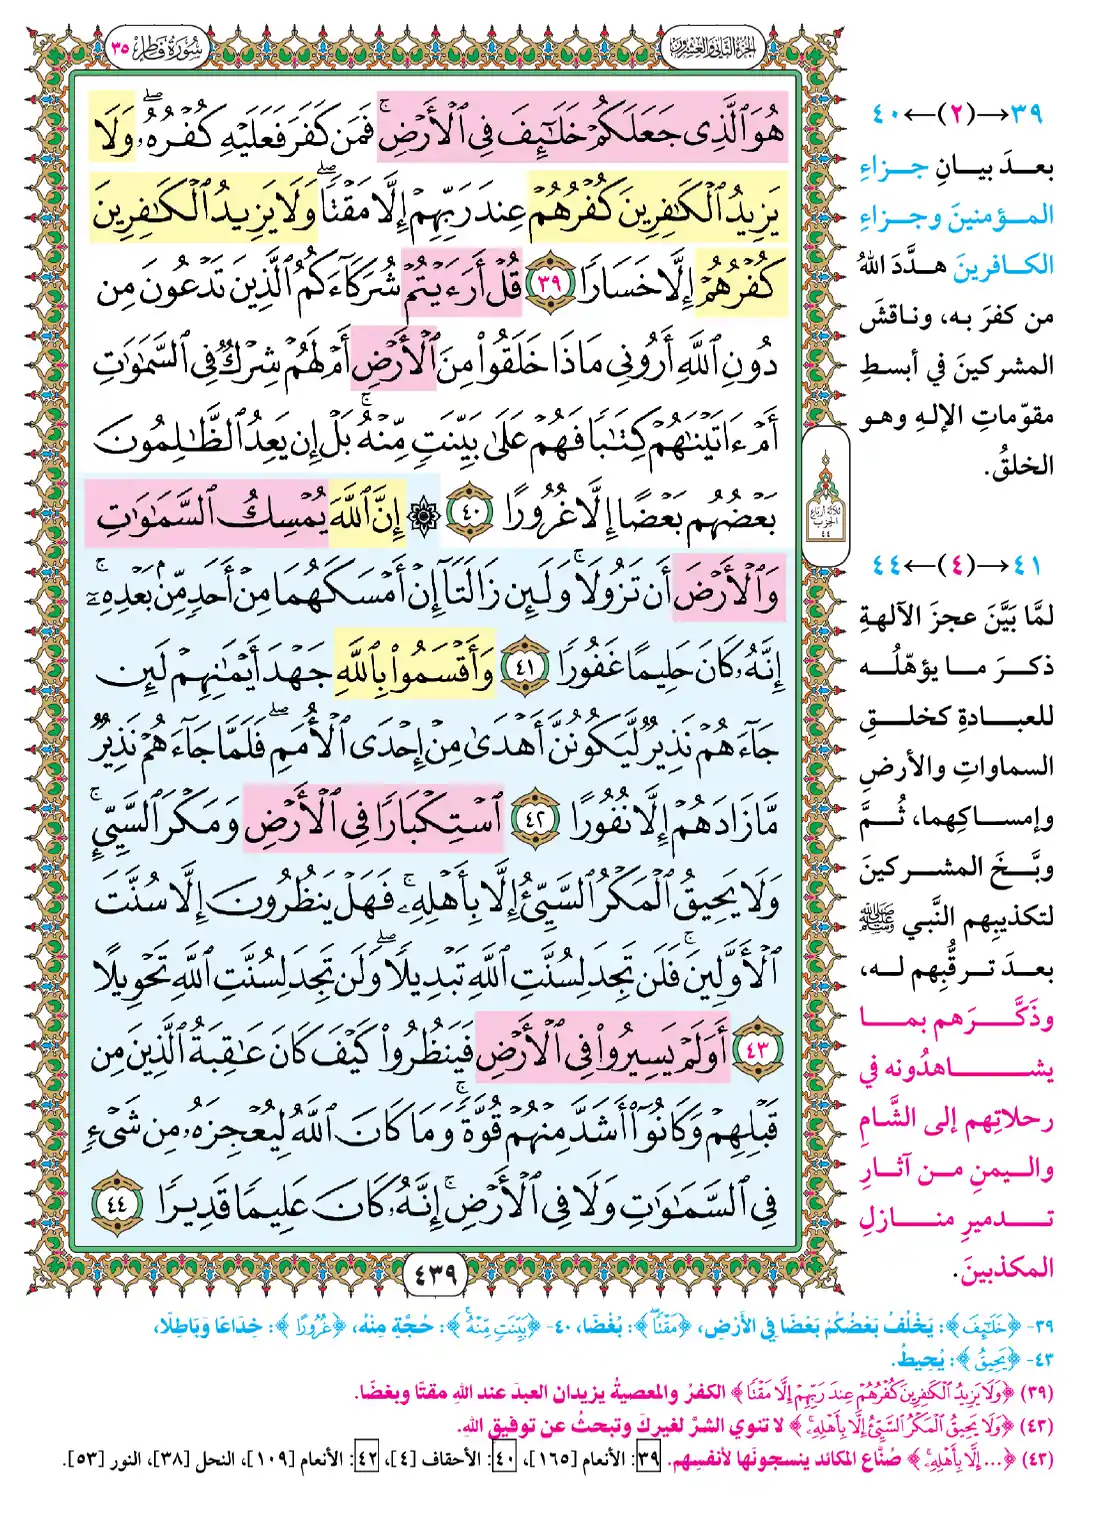 الجزء الثاني والعشرون
سورة فاطر ٣٥
هُوَ ٱلَّذِى جَعَلَكُمْ خَلَٰٓئِفَ فِى ٱلْأَرْضِ ۚ فَمَن كَفَرَ فَعَلَيْهِ كُفْرُهُۥ ۖ وَلَا
يَزِيدُ ٱلْكَٰفِرِينَ كُفْرُهُمْ عِندَ رَبِّهِمْ إِلَّا مَقْتًا ۖ وَلَا يَزِيدُ ٱلْكَٰفِرِينَ
كُفْرُهُمْ إِلَّا خَسَارًا ٣٩ قُلْ أَرَءَيْتُمْ شُرَكَآءَكُمُ ٱلَّذِينَ تَدْعُونَ مِن
دُونِ ٱللَّهِ أَرُونِى مَاذَا خَلَقُوا۟ مِنَ ٱلْأَرْضِ أَمْ لَهُمْ شِرْكٌ فِى ٱلسَّمَٰوَٰتِ
أَمْ ءَاتَيْنَٰهُمْ كِتَٰبًا فَهُمْ عَلَىٰ بَيِّنَتٍ مِّنْهُ ۚ بَلْ إِن يَعِدُ ٱلظَّٰلِمُونَ
بَعْضُهُم بَعْضًا إِلَّا غُرُورًا ٤٠ ۞ إِنَّ ٱللَّهَ يُمْسِكُ ٱلسَّمَٰوَٰتِ
وَٱلْأَرْضَ أَن تَزُولَا ۚ وَلَئِن زَالَتَآ إِنْ أَمْسَكَهُمَا مِنْ أَحَدٍ مِّنۢ بَعْدِهِۦٓ ۚ
إِنَّهُۥ كَانَ حَلِيمًا غَفُورًا ٤١ وَأَقْسَمُوا۟ بِٱللَّهِ جَهْدَ أَيْمَٰنِهِمْ لَئِن
جَآءَهُمْ نَذِيرٌ لَّيَكُونُنَّ أَهْدَىٰ مِنْ إِحْدَى ٱلْأُمَمِ ۖ فَلَمَّا جَآءَهُمْ نَذِيرٌ
مَّا زَادَهُمْ إِلَّا نُفُورًا ٤٢ ٱسْتِكْبَارًا فِى ٱلْأَرْضِ وَمَكْرَ ٱلسَّيِّئِ ۚ
وَلَا يَحِيقُ ٱلْمَكْرُ ٱلسَّيِّئُ إِلَّا بِأَهْلِهِۦ ۚ فَهَلْ يَنظُرُونَ إِلَّا سُنَّتَ
ٱلْأَوَّلِينَ ۚ فَلَن تَجِدَ لِسُنَّتِ ٱللَّهِ تَبْدِيلًا ۖ وَلَن تَجِدَ لِسُنَّتِ ٱللَّهِ تَحْوِيلًا
٤٣ أَوَلَمْ يَسِيرُوا۟ فِى ٱلْأَرْضِ فَيَنظُرُوا۟ كَيْفَ كَانَ عَٰقِبَةُ ٱلَّذِينَ مِن
قَبْلِهِمْ وَكَانُوٓا۟ أَشَدَّ مِنْهُمْ قُوَّةً ۚ وَمَا كَانَ ٱللَّهُ لِيُعْجِزَهُۥ مِن شَىْءٍ
فِى ٱلسَّمَٰوَٰتِ وَلَا فِى ٱلْأَرْضِ ۚ إِنَّهُۥ كَانَ عَلِيمًا قَدِيرًا ٤٤
٤٣٩
ثلاثة أرباع
الحزب
٤٤
٣٩→(٢)←٤٠
بعدَ بيانِ جزاءِ
المؤمنينَ وجزاءِ
الكافرينَ هدَّدَ اللهُ
من كفرَ به، وناقشَ
المشركينَ في أبسطِ
مقوّماتِ الإلهِ وهو
الخلقُ.
٤١→(٤)←٤٤
لمَّا بيَّنَ عجزَ الآلهةِ
ذكرَ ما يؤهّلُه
للعبادةِ كخلقِ
السماواتِ والأرضِ
وإمساكِهما، ثُمَّ
وبَّخَ المشركينَ
لتكذيبِهم النَّبي ﷺ
بعدَ ترقُّبِهم له،
وذَكَّرَهم بما
يشاهدُونه في
رحلاتِهم إلى الشَّامِ
واليمنِ من آثارِ
تدميرِ منازلِ
المكذبينَ.
٣٩- ﴿خَلَٰٓئِفَ﴾: يَخْلُفُ بَعْضُكُمْ بَعْضًا فِي الأَرْضِ، ﴿مَقْتًا﴾: بُغْضًا، ٤٠- ﴿بَيِّنَتٍ مِّنْهُ﴾: حُجَّةٍ مِنْهُ، ﴿غُرُورًا﴾: خِدَاعًا وَبَاطِلًا،
٤٣- ﴿يَحِيقُ﴾: يُحِيطُ.
(٣٩) ﴿وَلَا يَزِيدُ ٱلْكَٰفِرِينَ كُفْرُهُمْ عِندَ رَبِّهِمْ إِلَّا مَقْتًا﴾ الكفرُ والمعصيةُ يزيدان العبدَ عند اللهِ مقتًا وبغضًا.
(٤٣) ﴿وَلَا يَحِيقُ ٱلْمَكْرُ ٱلسَّيِّئُ إِلَّا بِأَهْلِهِۦ﴾ لا تنوي الشرَّ لغيركَ وتبحثُ عن توفيقِ اللهِ.
(٤٣) ﴿... إِلَّا بِأَهْلِهِۦ﴾ صُنَّاع المكائد ينسجونَها لأنفسِهم. ٣٩: الأنعام [١٦٥]، ٤٠: الأحقاف [٤]، ٤٢: الأنعام [١٠٩]، النحل [٣٨]، النور [٥٣].